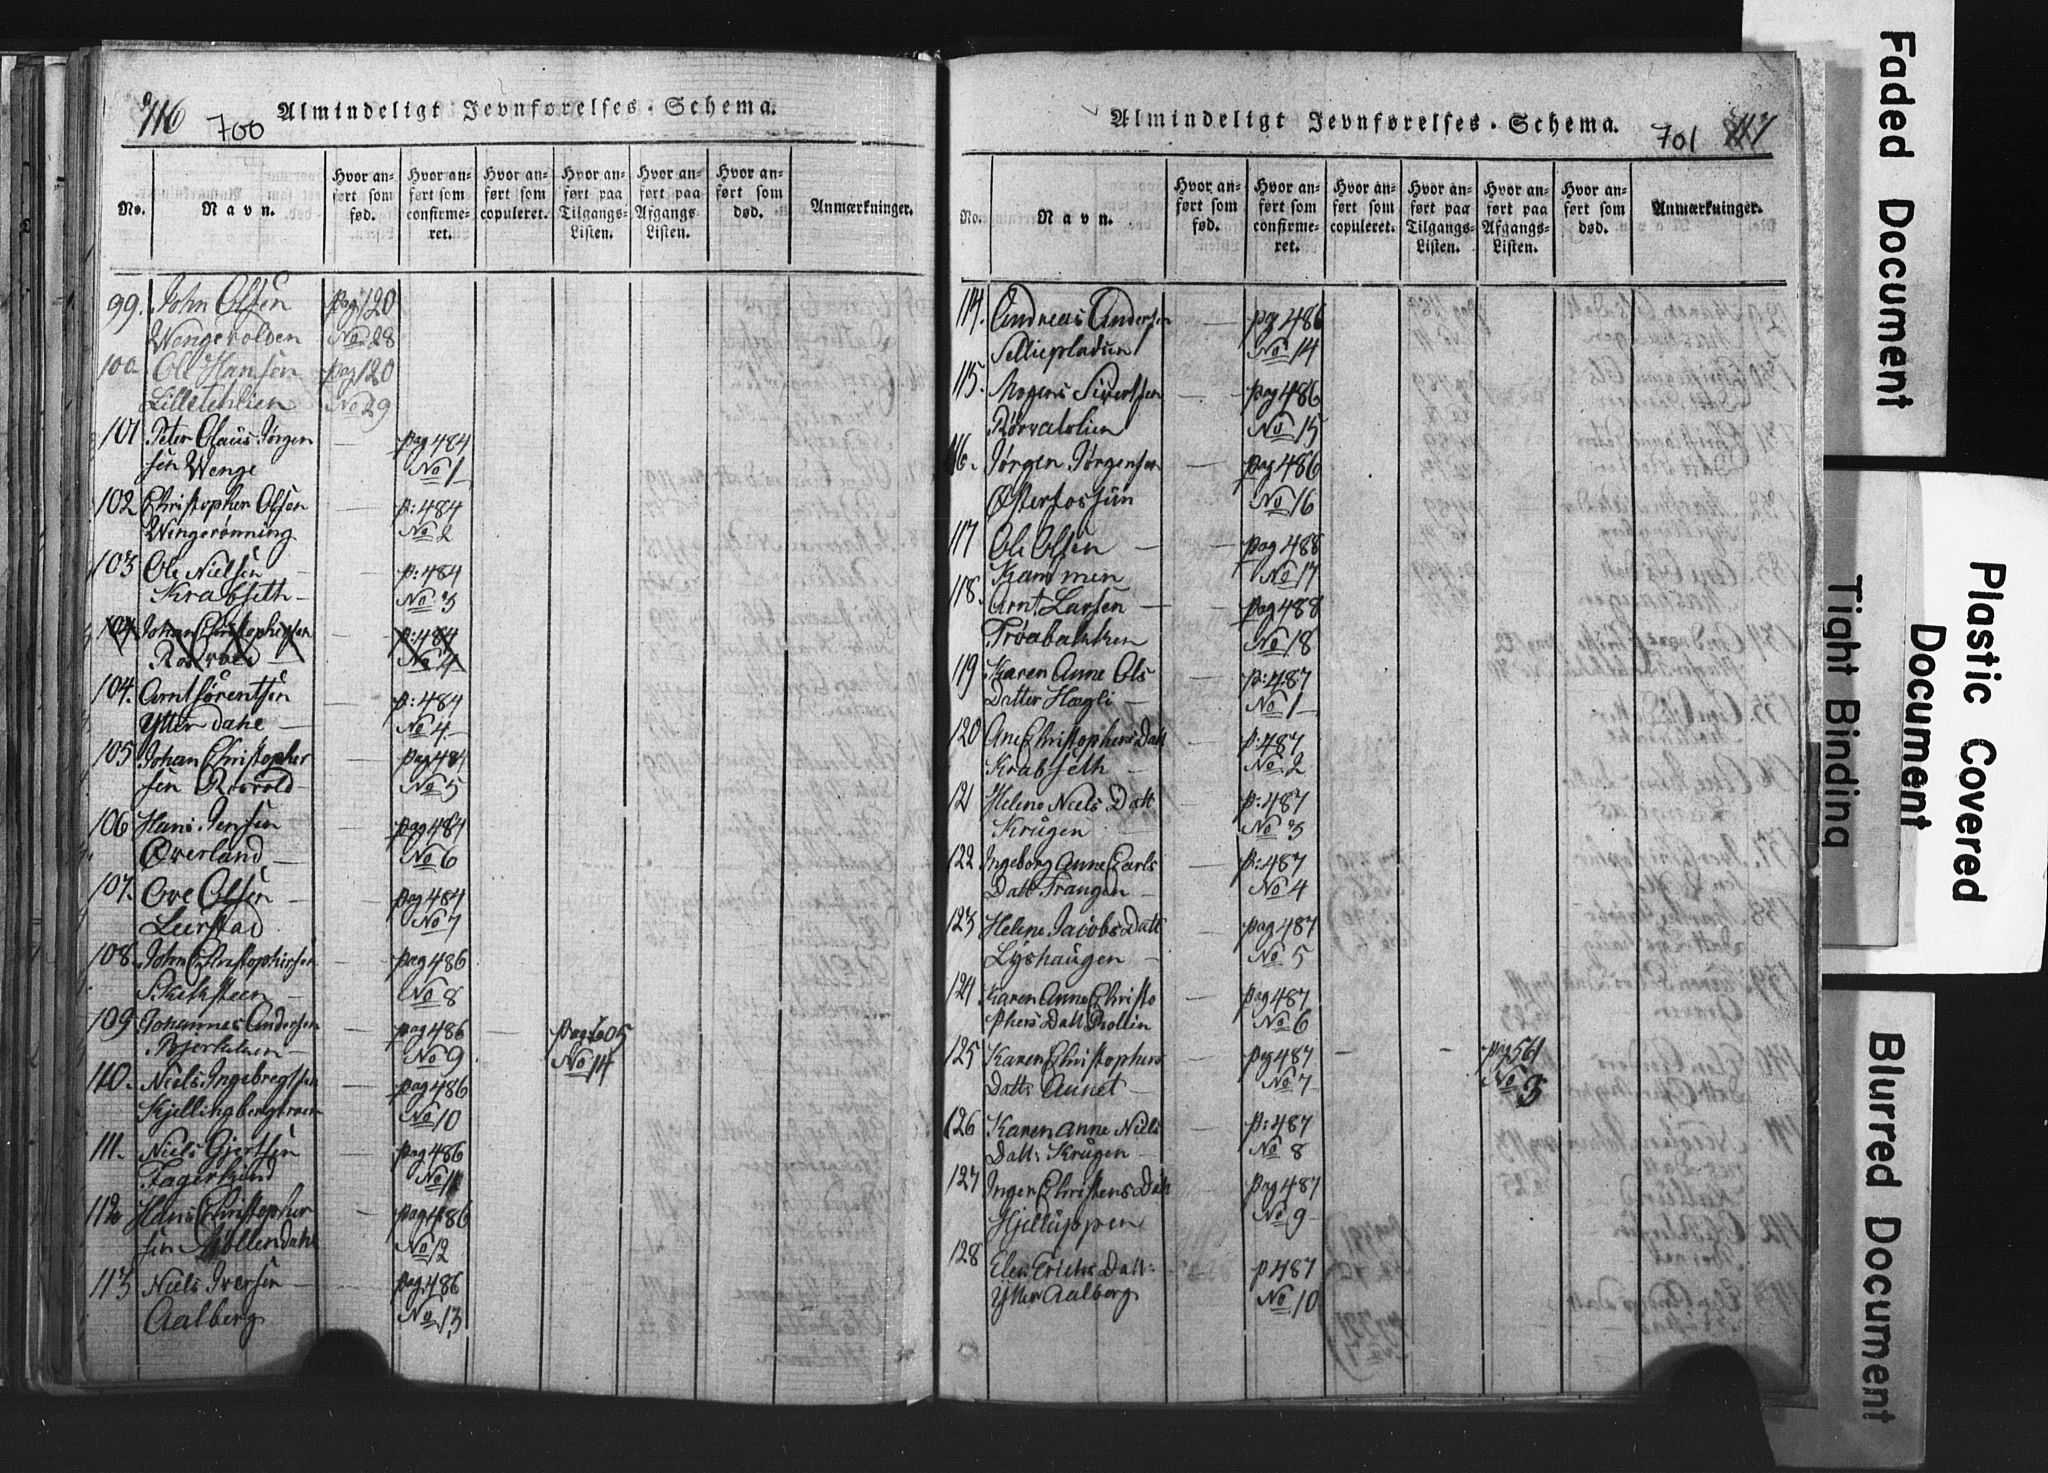 116 700 Almindeligt Jevnførelses-Schema.
No. Navn. Hvor anført som fød. Hvor anført som confirmeret. Hvor anført som copuleret. Hvor anført paa Tilgangs-Listen. Hvor anført paa Afgangs-Listen. Hvor anført som død. Anmærkninger.
99. John Olsen pag 120
Wengevolden No 28
100. Ole Hansen pag 120
Lilletehlien No 29
101 Peter Olaus Jørgen — pag 484
sen Wenge No 1
102 Christopher Olsen — p: 484
Wengerønning No 2
103 Ole Nielsen — p: 484
Krabseth — No 3
104 Johan Christophersen p: 484
No 4
104. Arnt Sørentsen — p: 484
Ytter dahl — No 4
105 Johan Christopher — pag 484
sen Roevold No 5
106 Hans Jensen — pag 484
Øverland — No 6
107. Ove Olsen — pag 484
Leirstad No 7
108. John Christophersen — pag 486
No 8
109 Johannes Andersen — pag 486 — pag 605
No 9 No 14
110. Niels Ingebregtsen — pag 486
No 10
111. Niels Gjertsen — pag 486
No 11
112 Hans Christopher — pag 486
sen Møllendahl No 12
113 Niels Iversen — pag. 486
Aalberg No 13
Almindeligt Jevnførelses-Schema. 701 117
No. Navn. Hvor anført som fød. Hvor anført som confirmeret. Hvor anført som copuleret. Hvor anført paa Tilgangs-Listen. Hvor anført paa Afgangs-Listen. Hvor anført som død. Anmærkninger.
114. Andreas Andersen — pag 486
Selliepladsen No 14
115. Mogens Sivertsen — pag 486
No 15
116. Jørgen Jørgensen — pag 486
No 16
117 Ole Olsen — — pag 488
Kammen No 17
118. Arnt Larsen — pag 488
Trøabakken No 18
119 Karen Anne Ols — p: 487
Datter Hægli — No 1
120 Ane Christophers Datt — p: 487
Krabseth — No 2
121 Helene Niels Datt — p: 487
Krügen No 3
122 Ingeborg Anne Earls — p: 487
Datt Trangen — No 4
123 Helene Jacobs Datt — pag 487
Lyshaugen — No 5
124. Karen Anne Christo — pag 487
phers Datt Rollin No 6
125 Karen Christophers — pag 487 — — pag 561
Datt: Aunet — No 7 No 3
126 Karen Anne Niels — p: 487
Datt: Krügen — No 8
127 Inger Christens Datt — pag 487
Hjelluppen No 9
128 Elen Erichs Datt: — p 487
Ytter Aalberg No 10
Faded Document
Plastic Covered Document
Tight Binding
Blurred Document